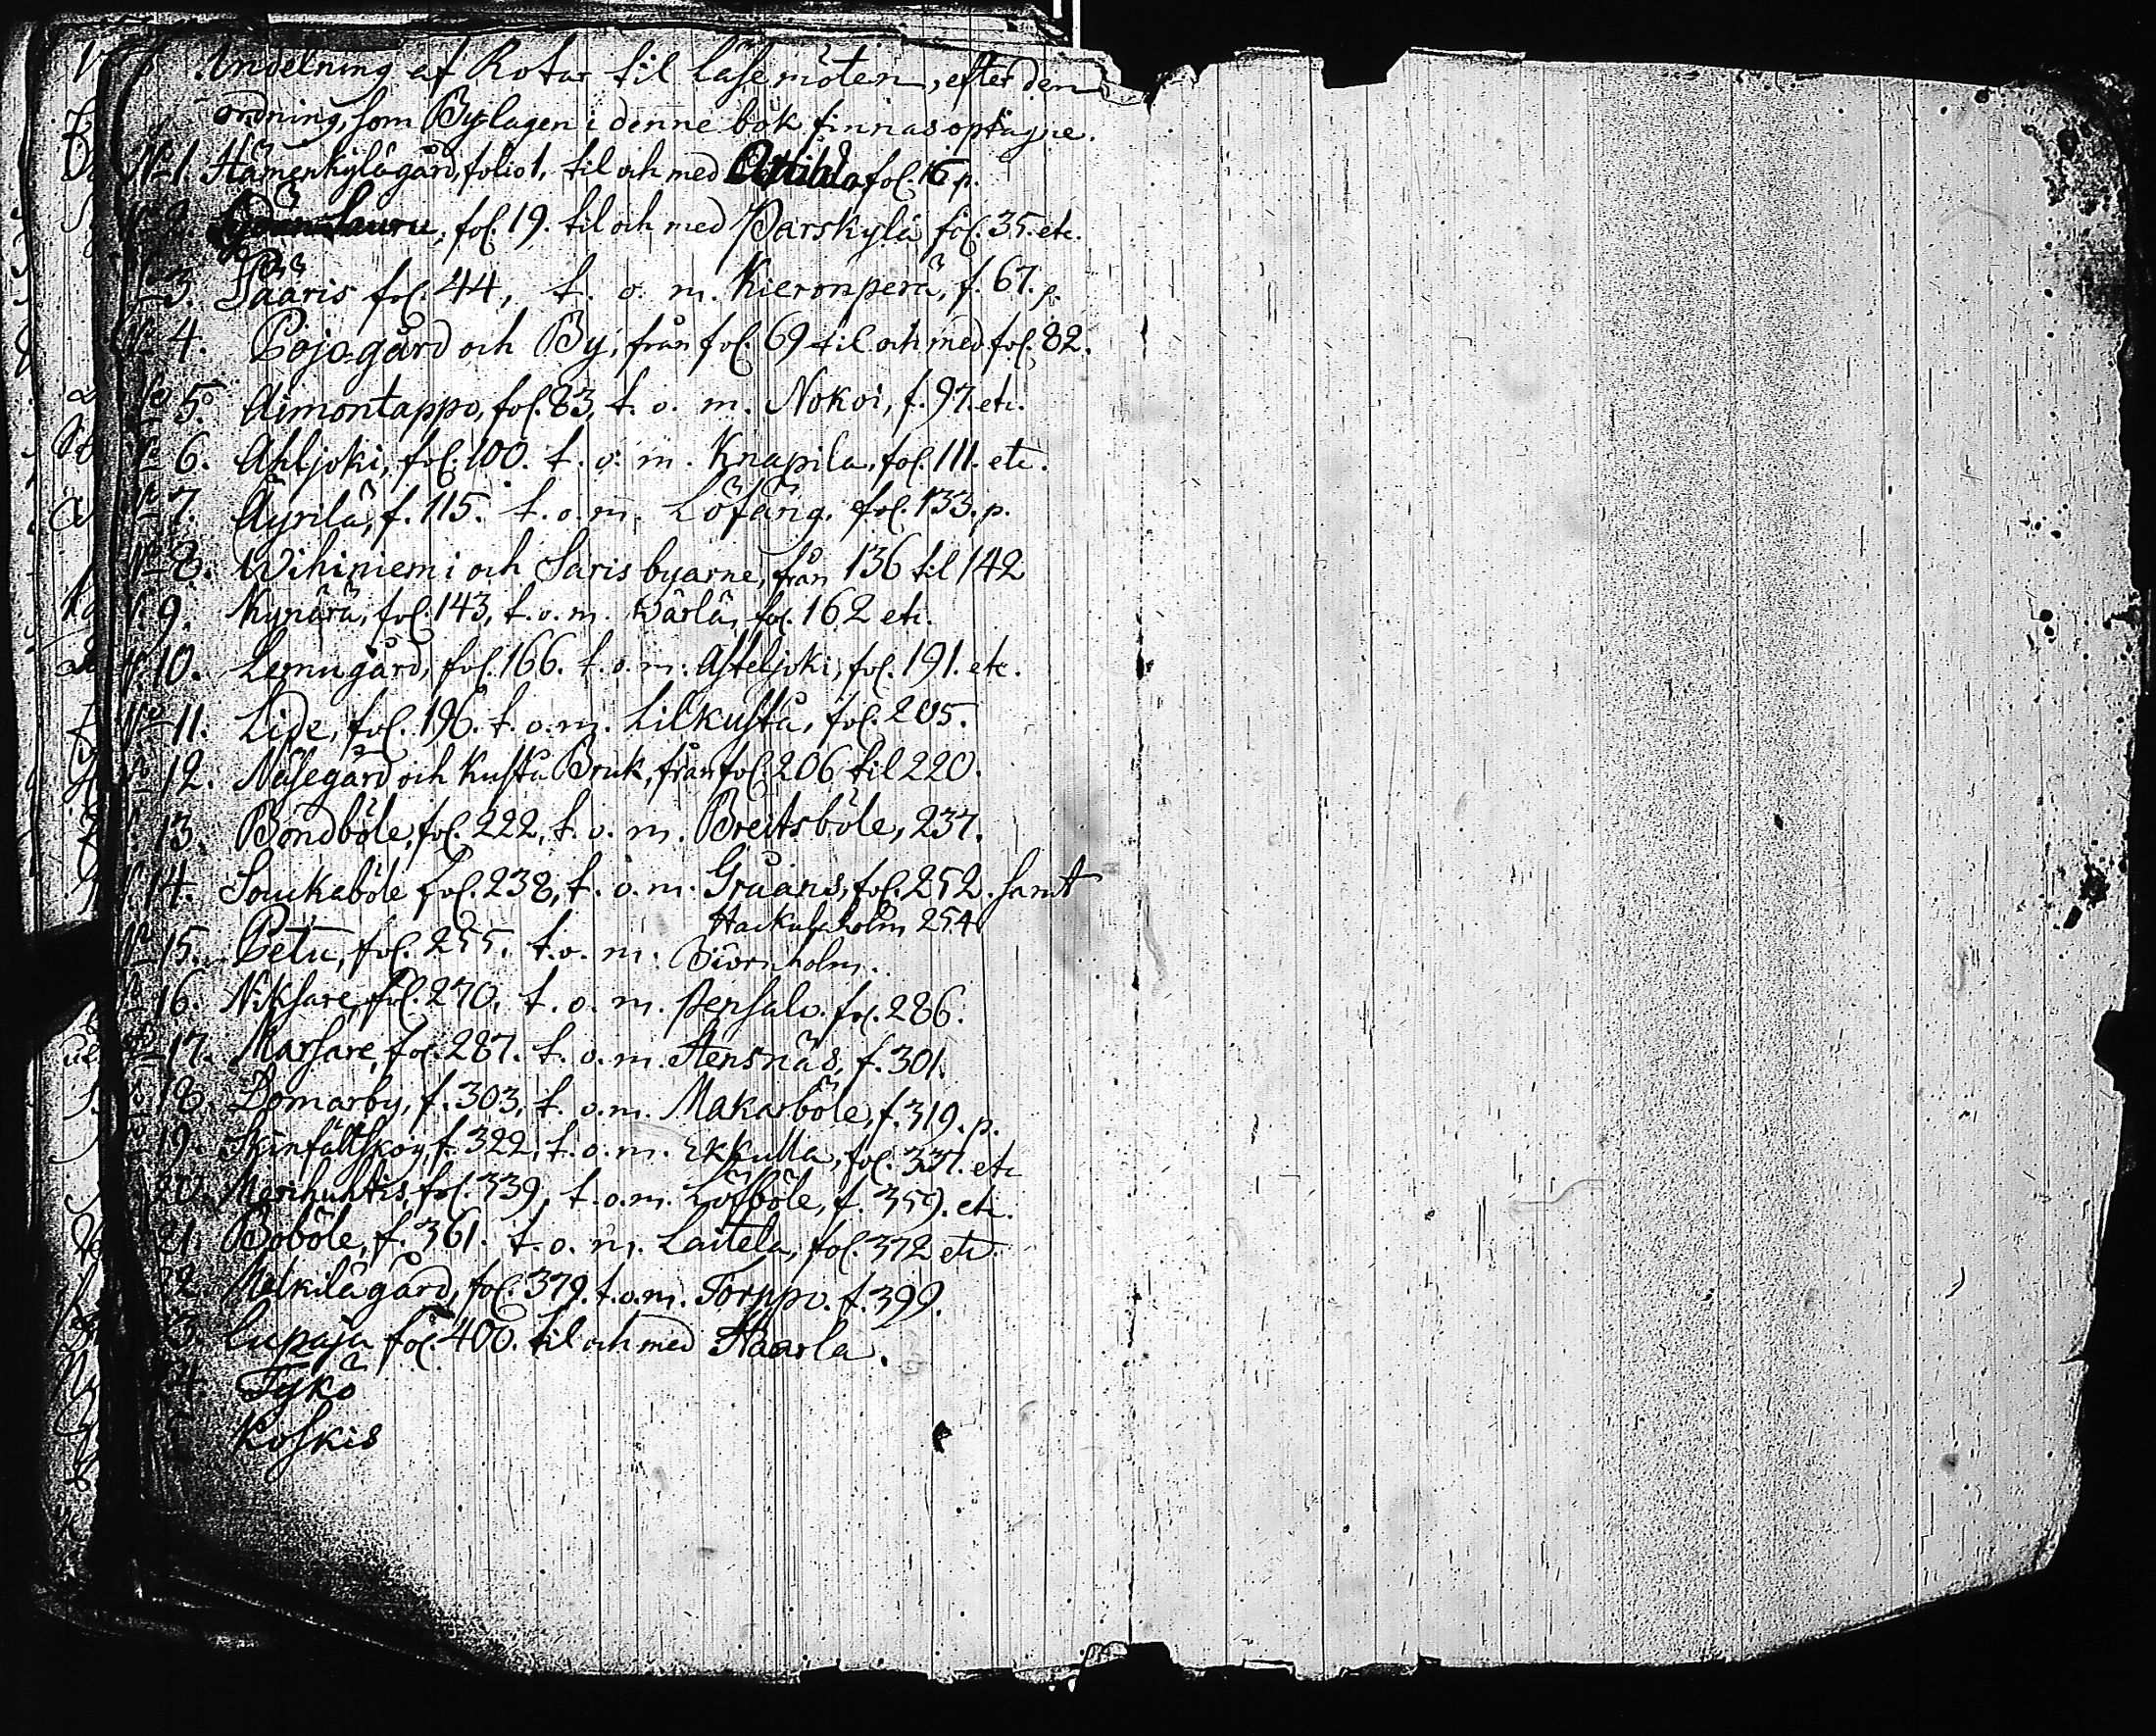 Indelning af Rotar til Läsemöten, efter den
ordning, som By-lagen i denne bok finnas optagne.
No 1. Hämenkylägård, folio 1, til och med Attihla, fol. 16 p.
No 2. fol. 19. til och med Parskylä fol. 35. etc.
No 3. Pääris fol. 44, t. o. m. Kieronperä, f. 67. p.
No 4. Pojo-gård och By, från fol. 69 til och med fol. 82.
No 5. Aimontappo, fol. 83, t. o. m. Nokoi, f. 97. etc.
No 6. Ahljoki, fol. 100. t. o. m. Knapila, fol. 111. etc.
No 7. Äyrilä, f. 115. t. o. m. Löfäng. fol. 133. p.
No 8. Wihiniemi och Saris byarne, från 136 til 142
N. 9. Kynärä, fol. 143, t. o. m. Wärlä, fol. 162 etc.
N. 10. Lemugård, fol. 166. t. o. m. Asteljoki, fol. 191. etc.
No 11. Lide, fol. 196. t. o. m. Lilkustå, fol. 205.
No 12. Näsegård och Kustå Bruk, från fol. 206 til 220.
N. 13. Bondböle, fol. 222, t. o. m. Breitsböle, 237.
N. 14. Soukaböle fol. 238, t. o. m. Gråans, fol. 252. samt
holm 254
No 15. Petu, fol. 255. t. o. m. Biörnholm.
No 16. Niksare, fol. 270, t. o. m. Pensalo. fol. 286.
No 17. Marsare, fol. 287. t. o. m. Stensnäs, f. 301.
No 18. Domarby, f. 303, t. o. m. Makarböle, f. 319. p.
No 19. Skinfällskog, f. 322, t. o. m. Ekkulla, fol. 337. etc
20. Merihuhtis, fol. 339, t. o. m. Löfböle, f. 359. etc.
21. Boböle, f. 361. t. o. m. Laitela, fol. 372 etc.
22. Melkilägård, fol. 379. t. o. m. Torppo. f. 399.
23. Lupaja fol. 400. til och med Haarla.
24. Tykö
Koskis